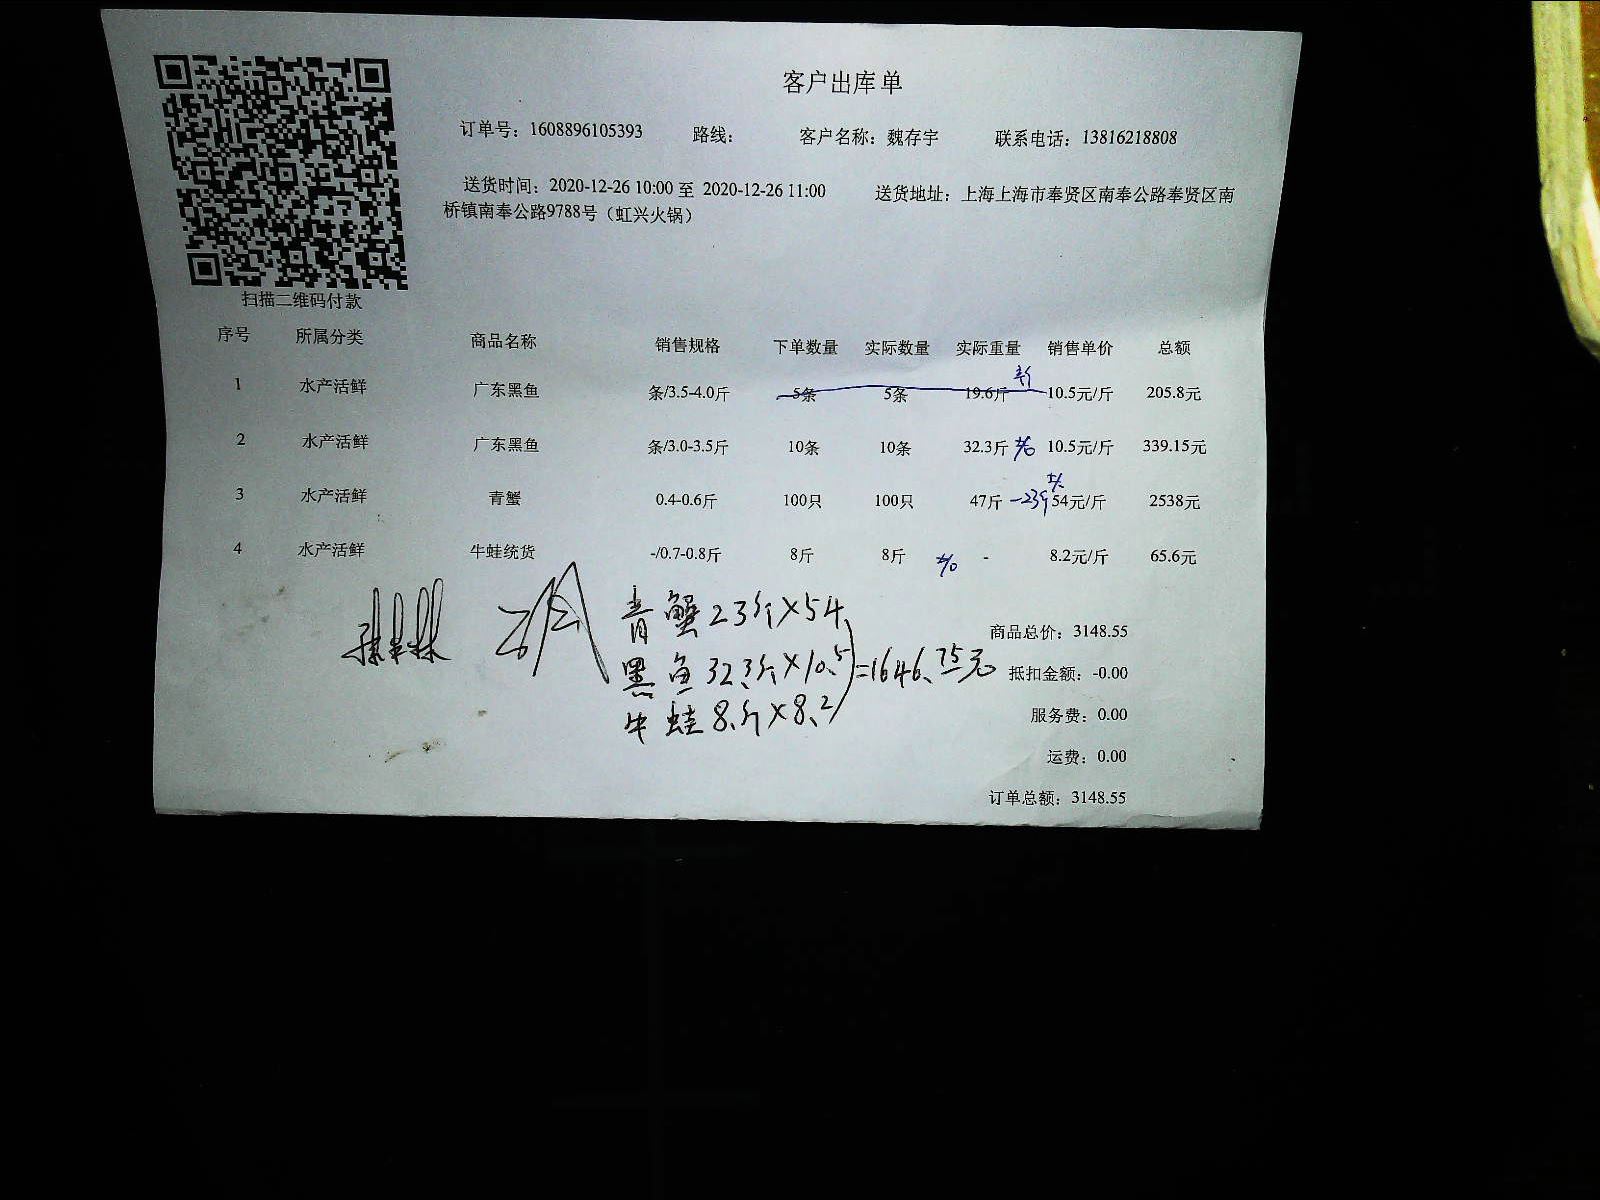 客户出库单
订单号：1608896105393 路线： 客户名称：魏存宇 联系电话：13816218808
送货时间：2020-12-26 10:00 至 2020-12-26 11:00 送货地址：上海上海市奉贤区南奉公路奉贤区南
桥镇南奉公路9788号（虹兴火锅）
扫描二维码付款
序号 所属分类 商品名称 销售规格 下单数量 实际数量 实际重量 销售单价 总额
1 水产活鲜 广东黑鱼 条/3.5-4.0斤 5条 5条 19.6斤 10.5元/斤 205.8元
2 水产活鲜 广东黑鱼 条/3.0-3.5斤 10条 10条 32.3斤 10.5元/斤 339.15元
3 水产活鲜 青蟹 0.4-0.6斤 100只 100只 47斤 -23斤 54元/斤 2538元
4 水产活鲜 牛蛙统货 -/0.7-0.8斤 8斤 8斤 - 8.2元/斤 65.6元
青蟹23斤×54
黑鱼32.3斤×10.5 =1646.75元
牛蛙8斤×8.2
商品总价：3148.55
抵扣金额：-0.00
服务费：0.00
运费：0.00
订单总额：3148.55